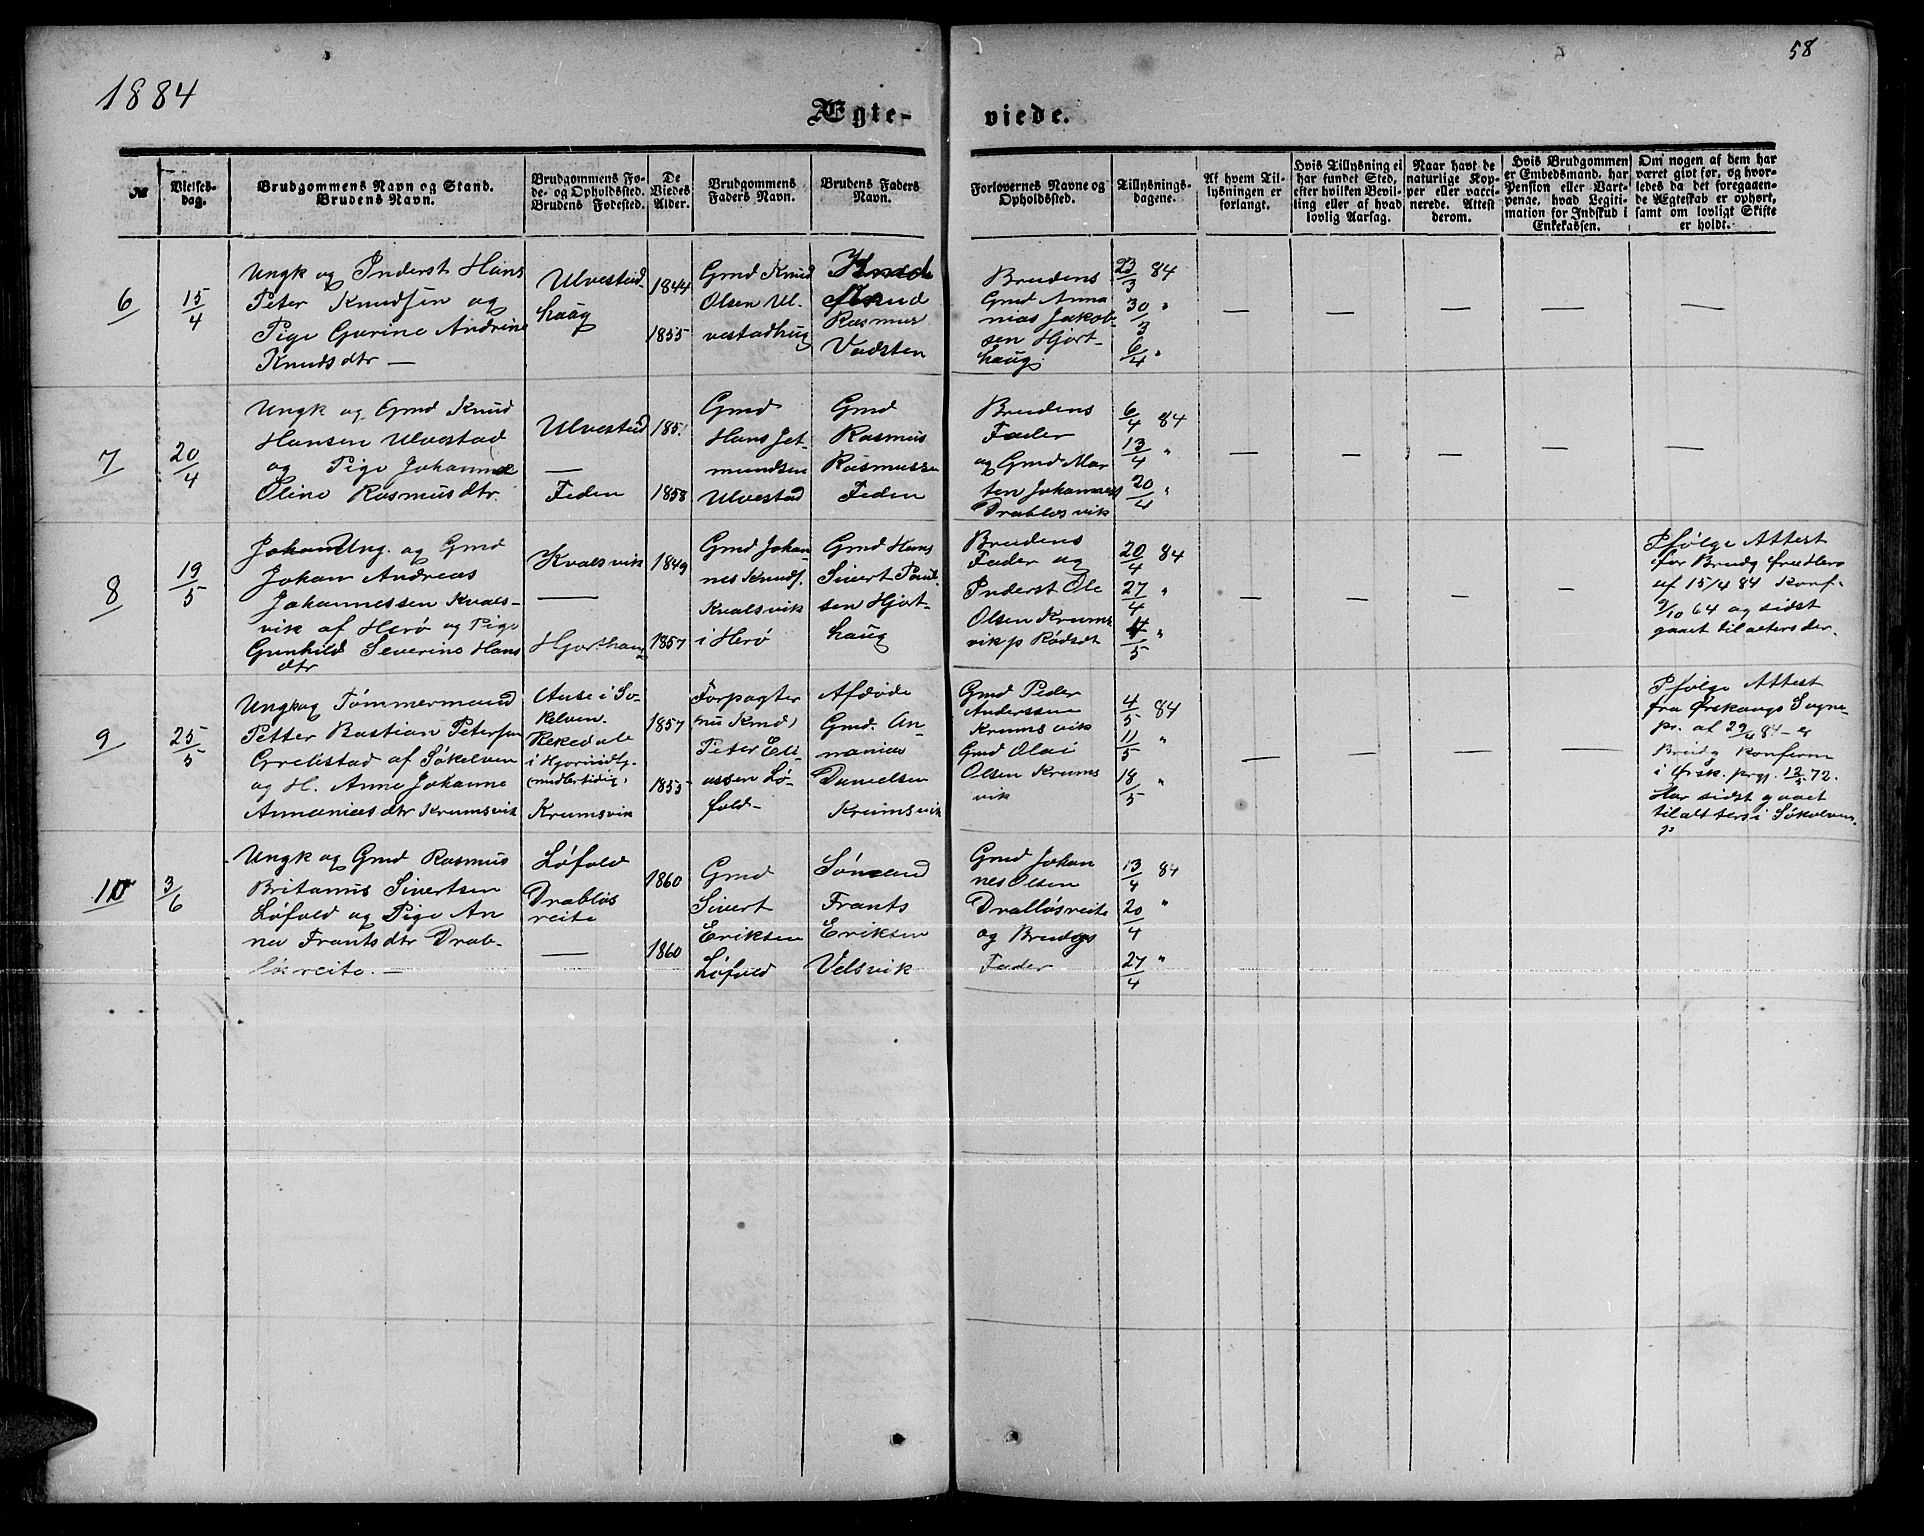 1884
58
Ægte-
viede.
№
Vielses-
dag.
Brudgommens Navn og Stand.
Brudens Navn.
Brudgommens Fø-
de- og Opholdssted.
Brudens Fødested.
De
Viedes
Alder.
Brudgommens
Faders Navn.
Brudens Faders
Navn.
Forlovernes Navne og
Opholdssted.
Tillysnings-
dagene.
Af hvem Til-
lysningen er
forlangt.
Hvis Tillysning ei
har fundet Sted,
efter hvilken Bevil-
ling eller af hvad
lovlig Aarsag.
Naar havt de
naturlige Kop-
per eller vacci-
nerede. Attest
derom.
Hvis Brudgommen
er Embedsmand, har
Pension eller Vart-
penge, hvad Legiti-
mation for Indskud i
Enkekassen.
Om nogen af dem har
været gift før, og hvor-
ledes da det foregaaen-
de Ægteskab er ophørt,
samt om lovligt Skifte
er holdt.
6
15/4
Ungk og Inderst Hans
Peter Knudsen og
Pige Gurine Andrine
Knudsdtr —
Ulvestad-
haug
1844
1855
Gmd Knud
Olsen Ul-
vestadhug
Knud
Rasmus
Vadsten
Brudens
Gmd Anna
nias Jakob-
sen Hjort-
haug
23/3 84
30/3 "
6/4 "
— — — — —
7
20/4
Ungk og Gmd Knud
Hansen Ulvestad
og Pige Johanne
Oline Rasmusdtr.
Ulvestad
—
Feden
1851
1858
Gmd
Hans Jet-
mundsen
Ulvestad
Gmd
Rasmus
Rasmussen
Feden
Brudens
Fader
og Gmd Mar
ten Johannes
Drabløsvik
6/4 84
13/4 "
20/4 "
— — — — —
8
19/5
Johan Ung. og Gmd
Johan Andreas
Johannessen Kvals-
vik af Herø og Pige
Gunhild Severine Hans
dtr
Kvalsvik
—
Hjorthaug
1849
1857
Gmd Johan-
nes Knuds.
Kvalsvik
i Herø
Gmd Hans
Sivert Poul-
sen Hjort-
haug
Brudens
Fader og
Inderst Ole
Olsen Krums
vik p Rødset
20/4 84
27/4 "
4/5 "
— — — —
Ifølge Attest
for Brudg fra Herø
af 15/4 84 Konf-
9/10 64 og sidst
gaaet til alters der.
9
25/5
Ungk og Tømmermand
Petter Bastian Petersen
Grebstad af Søkelven
og H. Anne Johanne
Annaniasdtr Krumsvik
Aure i Sø-
kelven.
Rekedale
i Hjørundfj.
(midlertidig)
Krumsvik
1857
1855
Forpagter
(nu Kmd)
Peter Eli-
assen Lø-
fold-
Afdøde
Gmd. An-
nanias
Danielsen
Krumsvik
Gmd Peder
Anderssen
Krumsvik
Gmd Olai
Olsen Krums
vik
4/5 84
11/5 "
18/5 "
— — — —
Ifølge Attest
fra Ørskaugs Sogne-
pr. af 29/4 84 - er
Brudg konferm
i Ørsk. prgj. 12/5 72.
Har sidst gaaet
til alters i Søkelven.
10
3/6
Ungk og Gmd Rasmus
Britanus Sivertsen
Løfold og Pige An
na Frantsdtr Drab-
løsreite. —
Løfold
Drabløs
reite
—
1860
1860
Gmd
Sivert
Eriksen
Løfold
Sømand
Frants
Eriksen
Velsvik
Gmd Johan
nes Olsen
Drabløsreite
og Brudgs
Fader
13/4 84
20/4 "
27/4 "